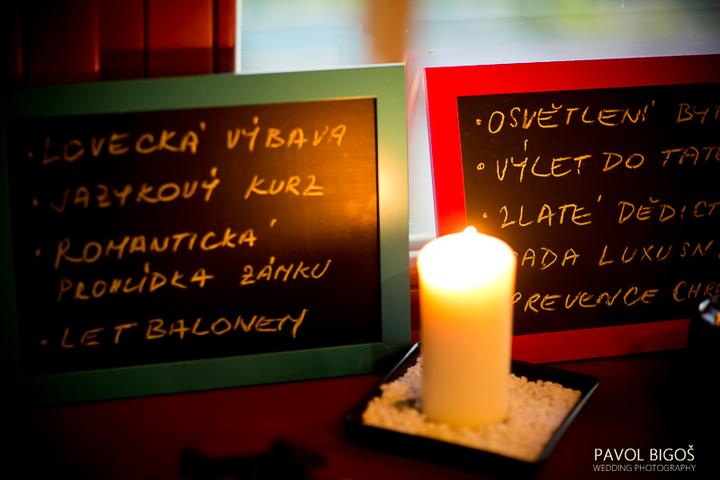 • LOVECKÁ VÝBAVA
• JAZYKOVÝ KURZ
• ROMANTICKÁ
PROHLÍDKA ZÁMKU
• LET BALONEM
• OSVĚTLENÍ
• VÝLET DO
• ZLATÉ
LUXUSN
PREVENCE
PAVOL BIGOŠ
WEDDING PHOTOGRAPHY